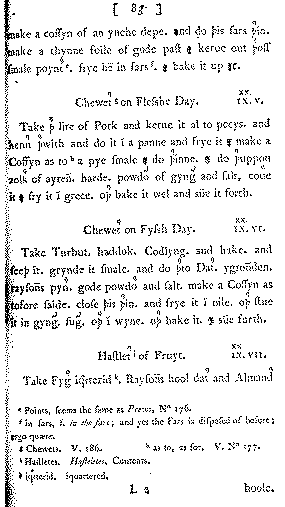 [ 83 ]
make a coffyn of an ynche depe. and do þis fars þin.
make a thynne foile of gode past & kerue out þoff
smale poynt e. frye hē in fars f. & bake it up &c.
Chewet g on Flesshe Day. XX. IX. V.
Take þ lire of Pork and kerue it al to pecys. and
henn þwith and do it ī a panne and frye it & make a
Coffyn as to h a pye smale & do þinne. & do þuppon
zolk of ayren. harde. powdo of gyng and salt, coue
it & fry it ī grece. oþ bake it wel and sūe it forth.
Chewet on Fyssh Day. XX. IX. VI.
Take Turbut. haddok. Codlyng. and hake. and
seep it. grynde it smale. and do þto Dat. ygronden.
raysons pyn. gode powdo and salt. make a Coffyn as
tofore saide. close þis þin. and frye it ī oile. oþ stue
it in gyng. sug. oþ ī wyne. oþ bake it. & sūe forth.
Haslet i of Fruyt. XX. IX. VII.
Take Fyg iqterid k. Raysons hool dat and Almand
e Points, seems the same as Pretes, No 176.
f in fars, i. in the fars; and yet the Fars is disposed of before;
ergo quære.
g Chewets. V. 186. h as to, as for. V. No 177.
i Hasletes. Hasteletes, Contents.
k iqterid. iquartered.
L 2 hoole.